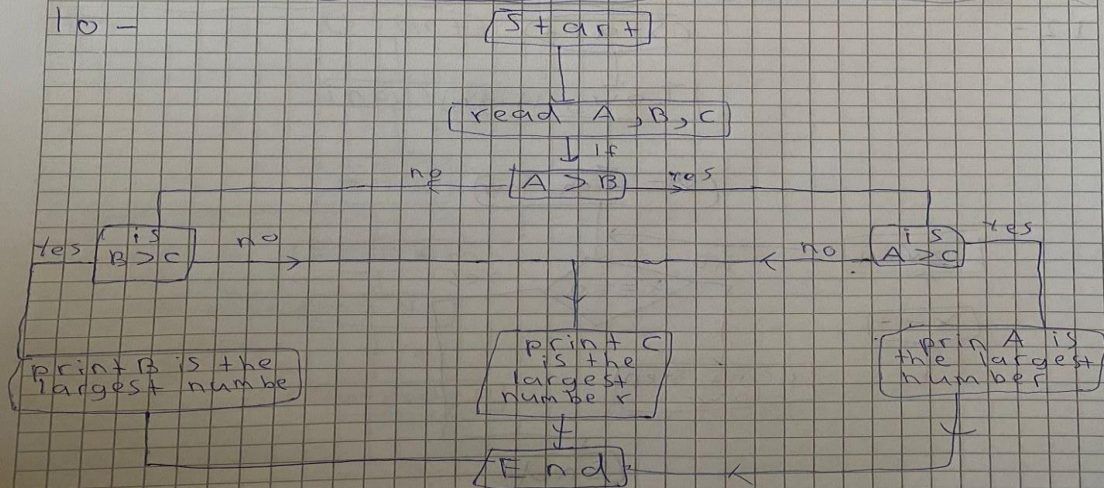 10-
Start
read A, B, C
If
no
A > B
yes
Yes
is
B > C
no
no
is
A > C
Yes
print B is the
largest numbe
print C
is the
largest
number
prin A is
the largest
number
End